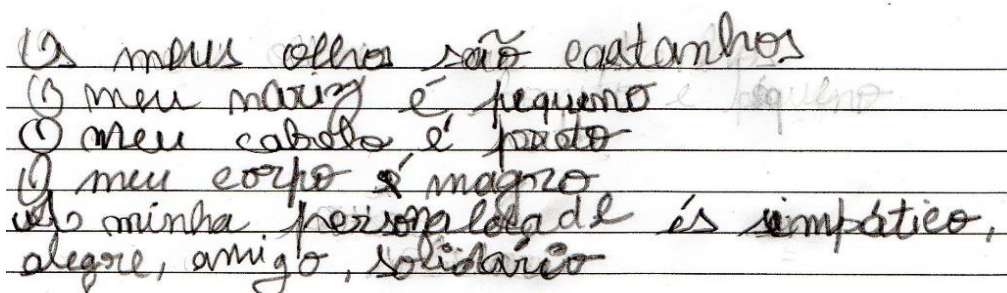 Os meus olhos são castanhos
O meu nariz é pequeno
O meu cabelo é preto
O meu corpo é magro
A minha personalidade és simpático,
alegre, amigo, solidário